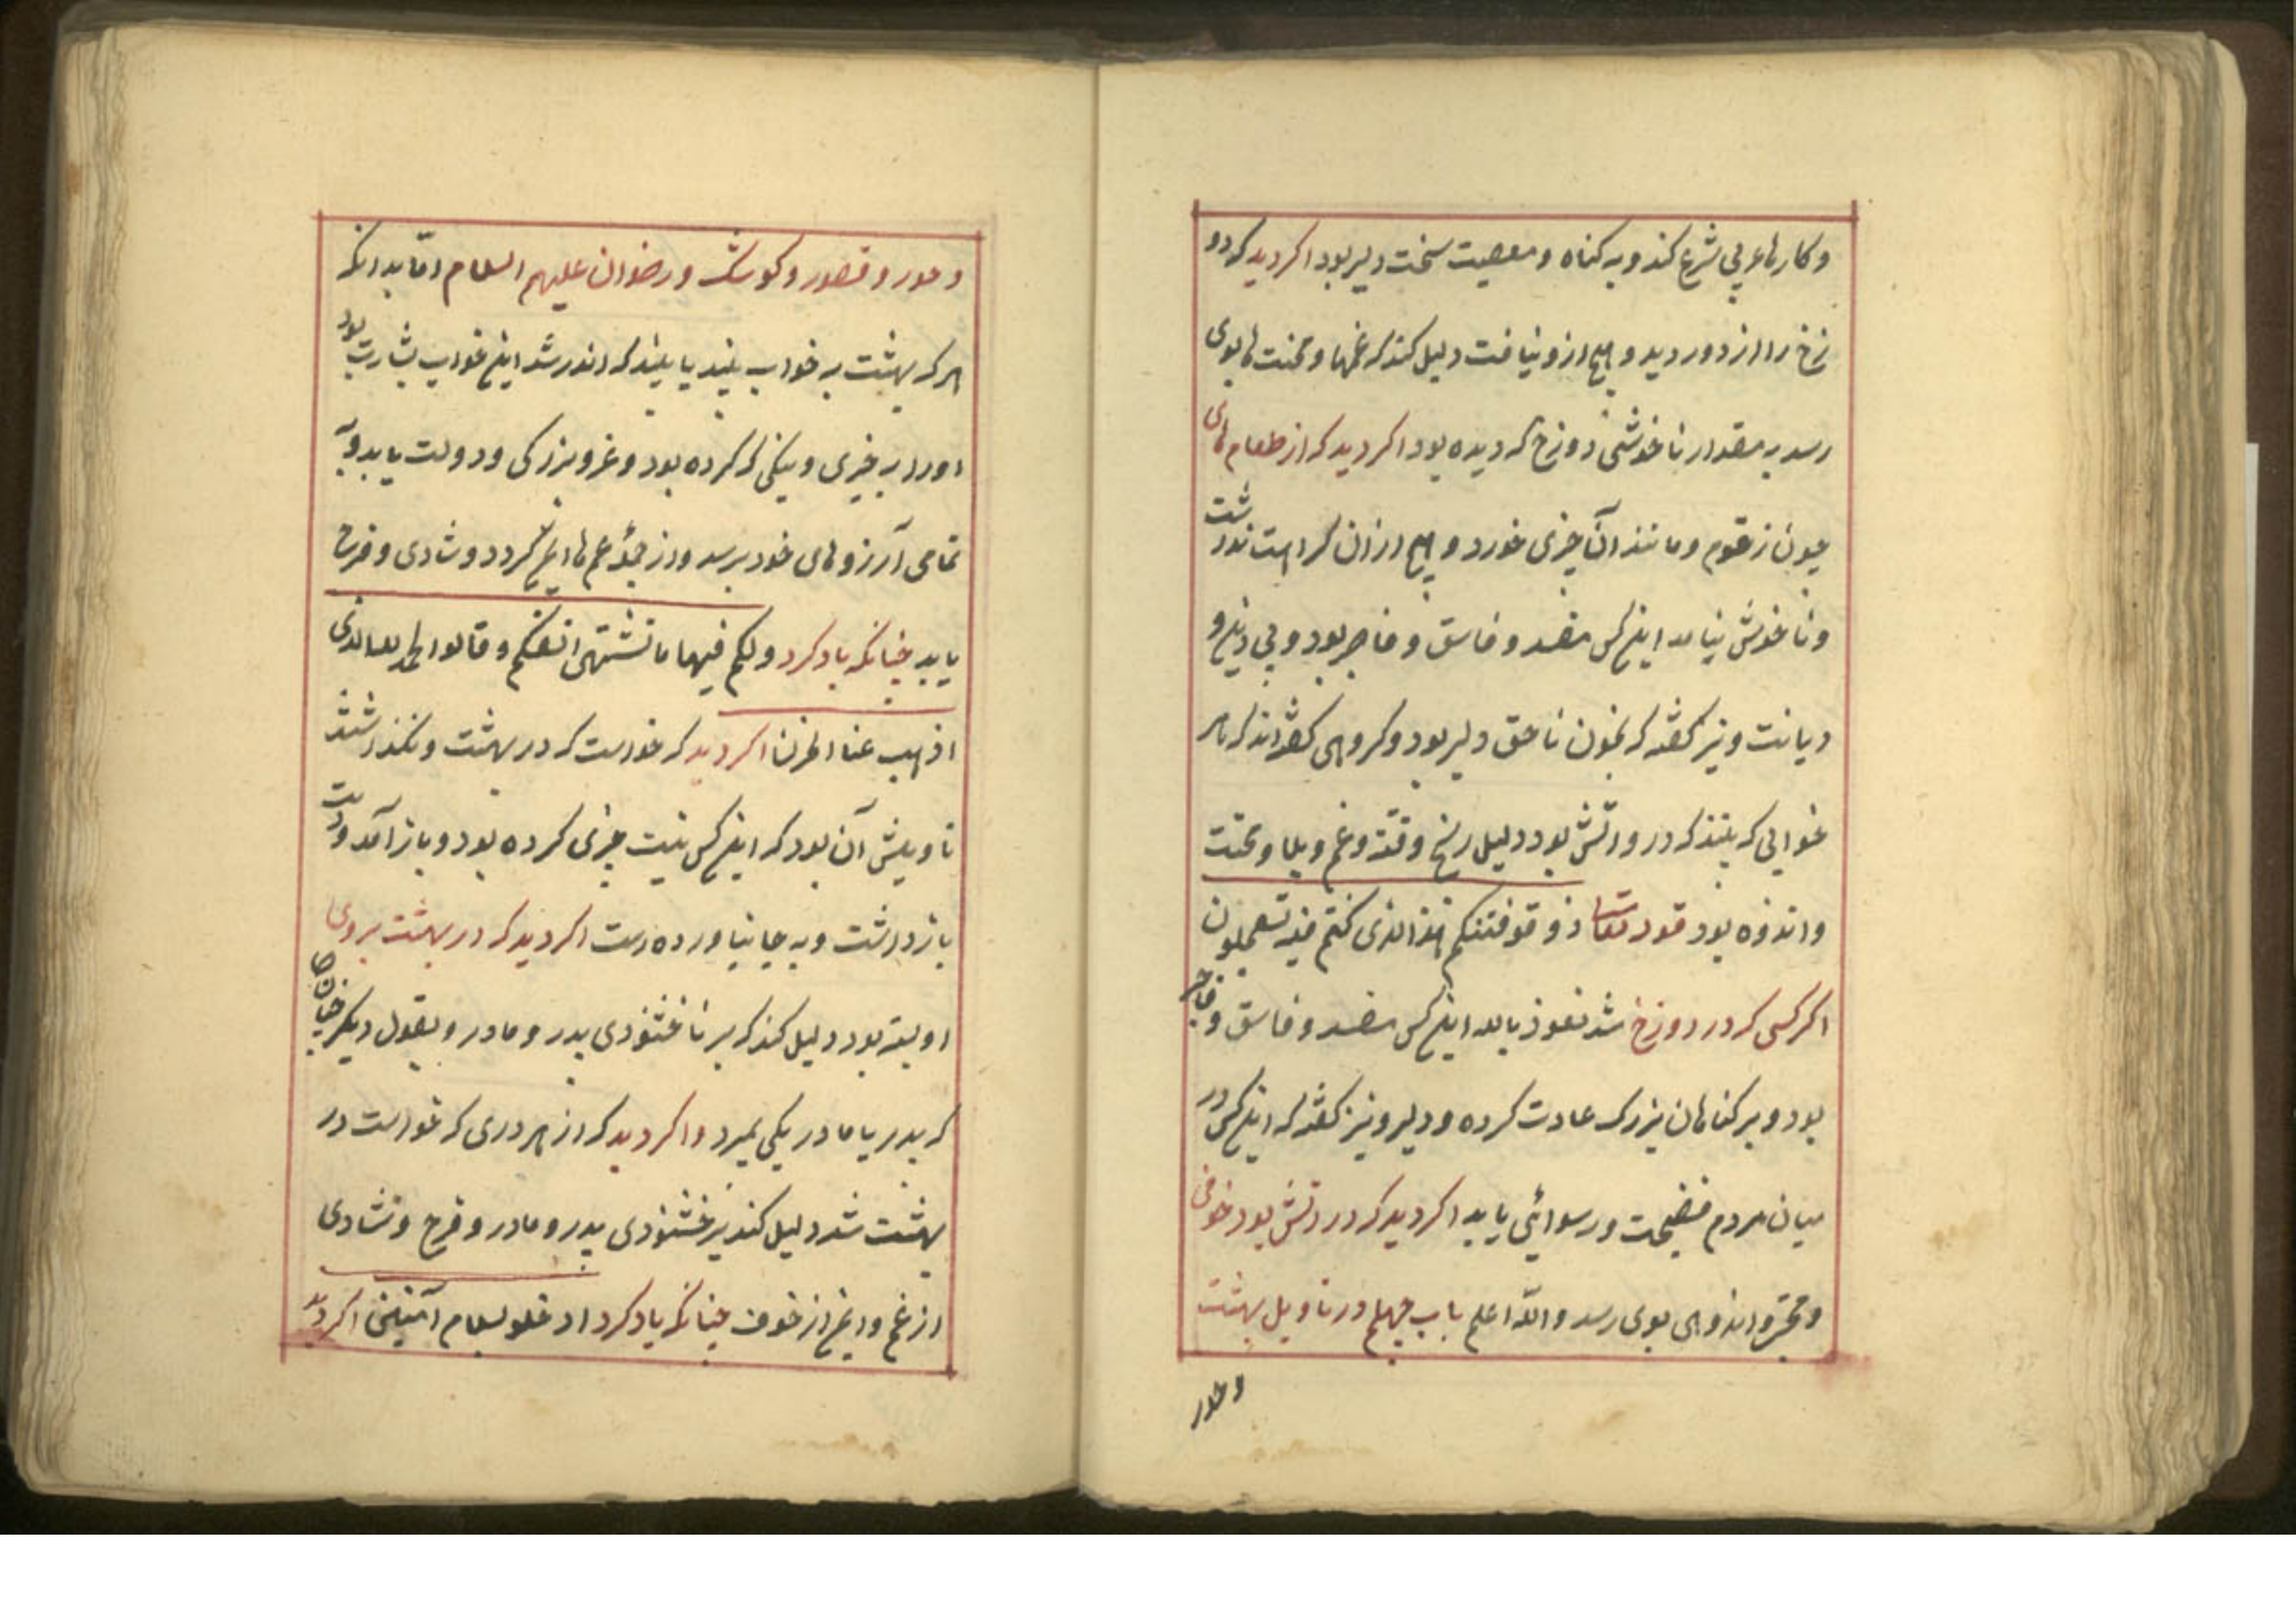 و کارهاء بی شرع کند و به کناه و معصیت سخت دلیر بود اکر دید که دو
زخ را از دور دید و هیچ ازو نیافت دلیل کند که غمها و محنت ها بوی
رسد به مقدار ناخوشی دوزخ که دیده بود اکر دید که از طعام های
چون زقوم و مانند آن چیزی خورد و هیچ ازان کراهت نداشت
و ناخوش نیامد اینکس مفسد و فاسق و فاجر بود و بی دین و
دیانت و نیز کفته که بخون ناحق دلیر بود و کروهی کفته اند که هر
خوابی که بیند که درو اتش بود دلیل رنج و فتنه و غم و بلا و محنت
و اندوه بود قوله تعالی ذوقوا فتنتکم هذا الذی کنتم به تعملون
اکر کسی که در دوزخ شد نعوذ بالله اینکس مفسد و فاسق و فاجر
بود و بر کناهان بزرک عادت کرده و دلیر و نیز کفته که اینکس در
میان مردم فضیحت و رسوائی یابد اکر دید که در اتش بود خوفی
و اندوهی بوی رسد والله اعلم باب چهلم در تاویل بهشت
و حور
و حور و قصور و کوشک و رضوان علیهم السلام اما بدانکه
هر که بهشت به خواب بیند یا بیند که اندر شد این خواب بشارت بود
او را به خیری و نیکی که کرده بود و عز و بزرکی و دولت یابد و به
تمامی آرزوهای خود برسد و از جملهٔ غم ها ایمن کردد و شادی و فرح
یابد چنانکه یاد کرد ولکم فیها ما تشتهی انفسکم و قالوا الحمد لله الذی
اذهب عنا الحزن اکر دید که خواست که در بهشت و نکذاشتند
تاویلش آن بود که اینکس نیت چیزی کرده بود و باز آمد و دست
بازداشت و به جا نیاورده است اکر دید که در بهشت بروی
او بسته بود دلیل کند که بر ناخشنودی پدر و مادر و بقول دیکر چنان
که پدر یا مادر یکی بمیرد و اکر دید که از هر دری که خواست در
بهشت شد دلیل کند بر خشنودی پدر و مادر و فرح و شادی
از غم و ایمن از خوف چنانکه یاد کرد ادخلوها بسلام آمنین اکر دید